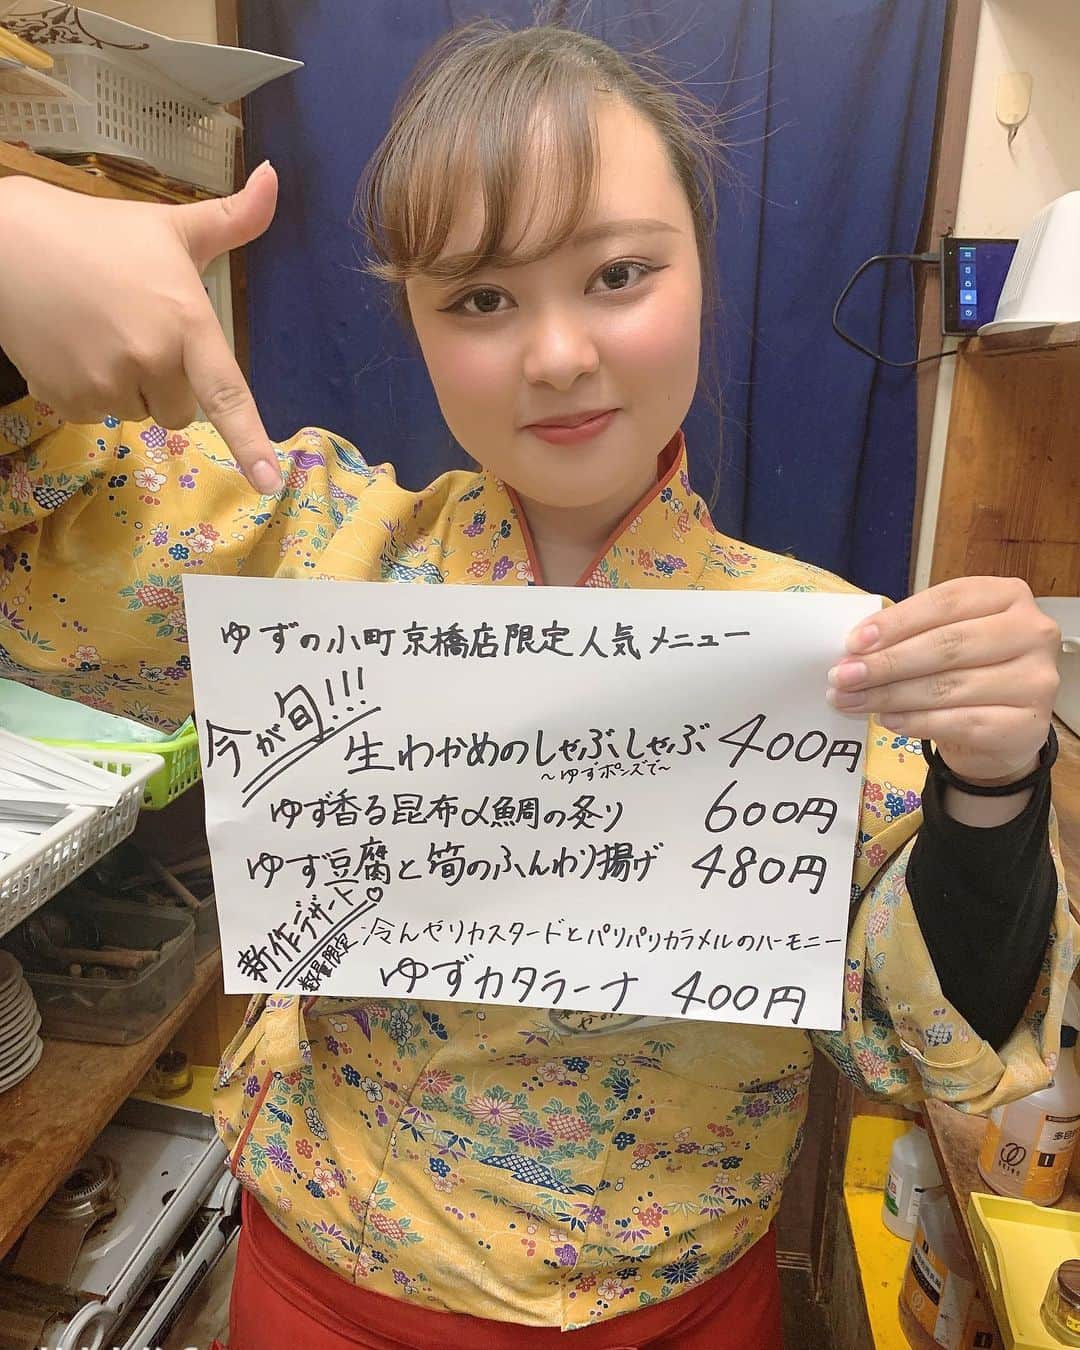 ゆずの小町京橋店限定人気メニュー
今が旬!!!
生わかめのしゃぶしゃぶ 400円
～ゆずポンズで～
ゆず香る昆布〆鯛の炙り 600円
ゆず豆腐と筍のふんわり揚げ 480円
新作デザート♡
数量限定
冷んやりカスタードとパリパリカラメルのハーモニー
ゆずカタラーナ 400円